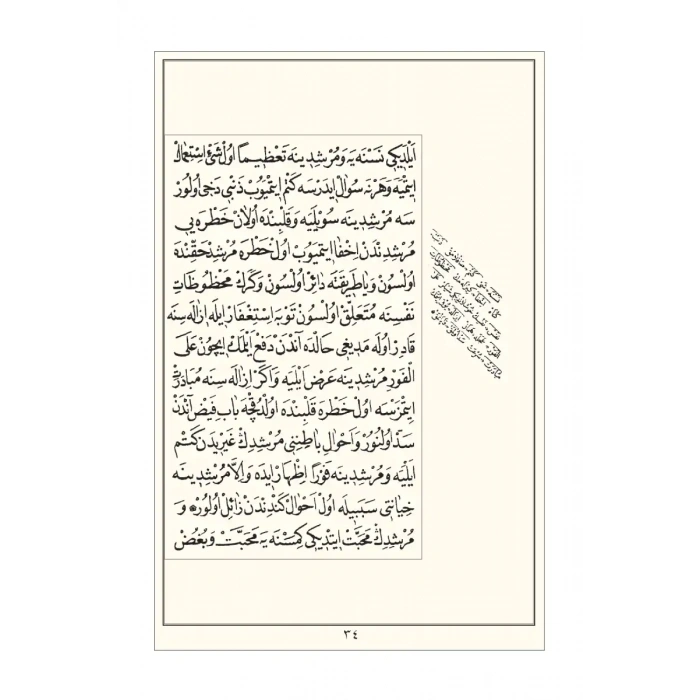 ايلديكى نسنه يه و مُرْشِدِينه تَعْظِيمًا اول شىء استعمال
ايتميه وهرنه سؤال ايدرسه كتم ايتميوب ذنبى دخى اولور
سه مُرْشِدِينه سويليه وقلبنده اولان خطره يى
مرشدندن اخفا ايتميوب اول خطره مرشد حقّنده
اولسون ويا طريقته دائر اولسون وكرك محظوظات
نفسينه متعلّق اولسون توبه استغفار ايله ازاله سنه
قادر اوله مديغى حالده آندن دفع ايلمك ايچون على
الفور مرشدينه عرض ايليه واكر ازاله سنه مبادرت
ايتمزسه اول خطره قلبنده اولدقچه باب فيض آندن
سدّ اولنور واحوال باطننى مرشدك غيريدن كتم
ايليه ومرشدينه فورًا اظهار ايده والّا مرشدينه
خيانتى سببيله اول احوال كندندن زائل اولور و
مرشدك محبّت ايتديكى كمسنه يه محبّت وبغض
٣٤